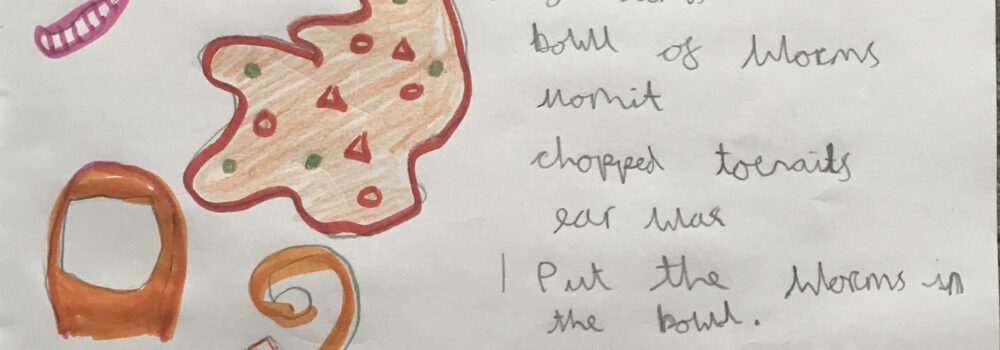 bowl of worms
vomit
chopped toenails
ear wax
1 Put the worms in
the bowl.